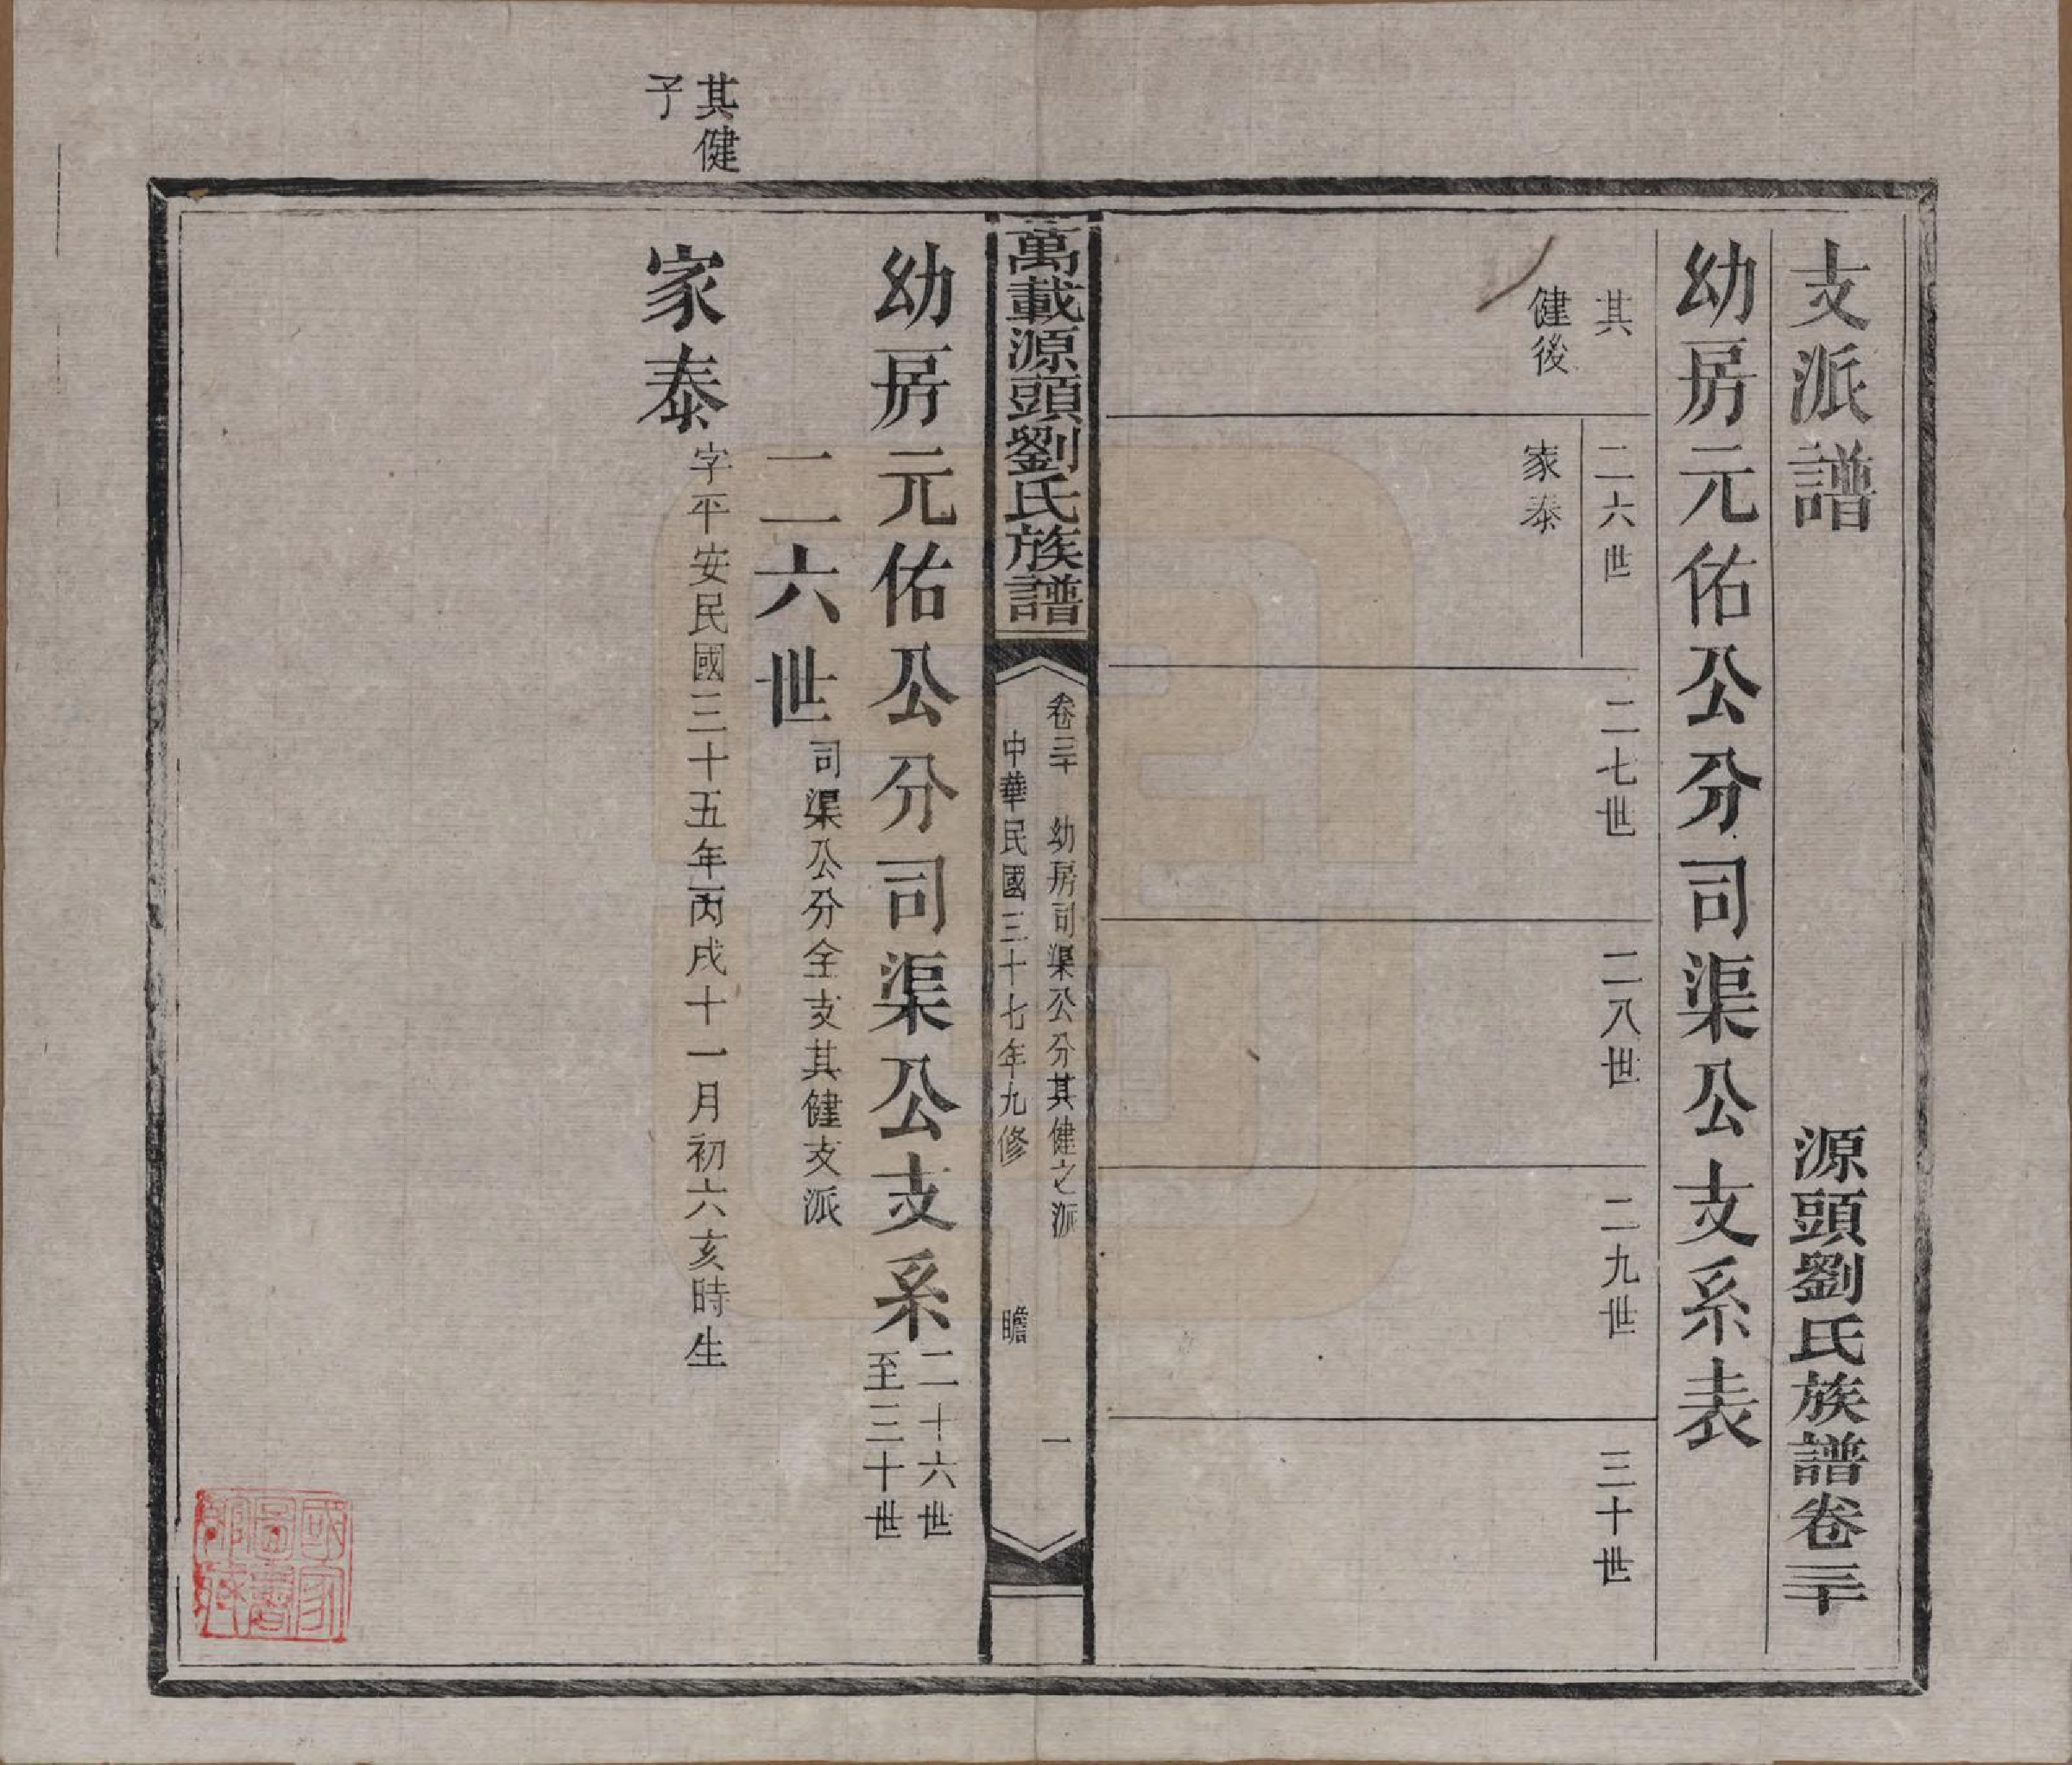 支派譜
源頭劉氏族譜卷三十
幼房元佑公分司渠公支系表
其
健後
二六世
家泰
二七世
二八世
二九世
三十世
萬載源頭劉氏族譜
卷三十 幼房司渠公分其健之派 一
中華民國三十七年九修 瞻
幼房元佑公分司渠公支系
二十六世
至三十世
二六世
司渠公分全支其健支派
其健
子
家泰
字平安民國三十五年丙戌十一月初六亥時生
國家
圖書
館藏